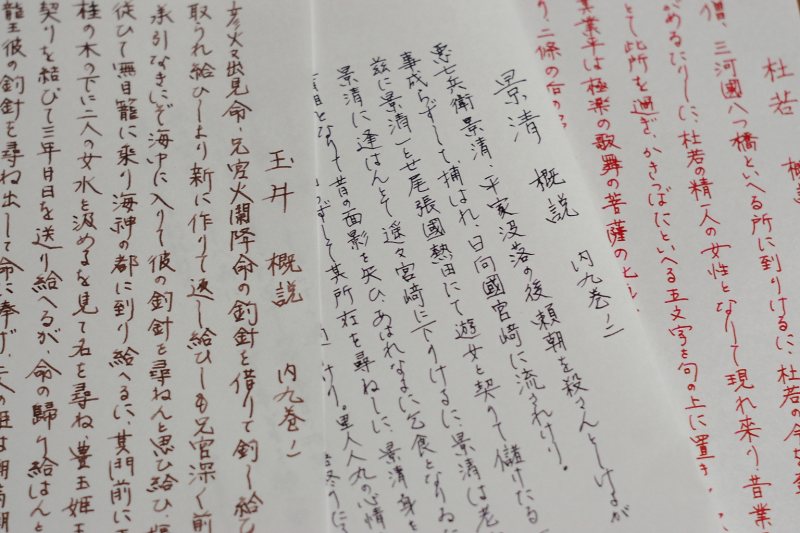 杜若　概
僧、三河國八つ橋といへる所に到りけるに、杜若の今
がめるたりしに、杜若の精一人の女性となりて現れ來り昔業
とて此所を過ぎ、かきつばたといへる五文字を句の上に置き
業平は極楽の歌舞の菩薩の
り、二條の
景清　概説　内九巻ノ二
悪七兵衛景清、平家没落の後頼朝を殺さんとしけるが
事成らずして捕はれ、日向國宮崎に流されけり。
景清一とせ尾張國熱田にて遊女と契りて儲けたる
茲に景清に逢はんとて遥々宮崎に下りけるに、景清は老
目となりて昔の面影を失ひ、あはれなまに乞食となりゐ
らずして其所在を尋ねしに、景清身を
けり。里人人丸の心情
玉井　概説　内九巻ノ二
彦火々出見命、兄宮火闌降命の釣針を借りて釣し給ひ
取られ給ひしより新に作りて返し給ひしも兄宮深く前
承引なきにぞ海中に入りて彼の釣針を尋ねんと思ひ給ひ、
従ひて無目籠に乗り海神の都に到り給へるに、其門前に
桂の木の下に二人の女水を汲めるを見て名を尋ね、豊玉姫
契りを結びて三年月日を送り給へるが、命の歸り給はんと
龍王彼の釣針を尋ね出して命に奉げ、二人の姫は潮満潮